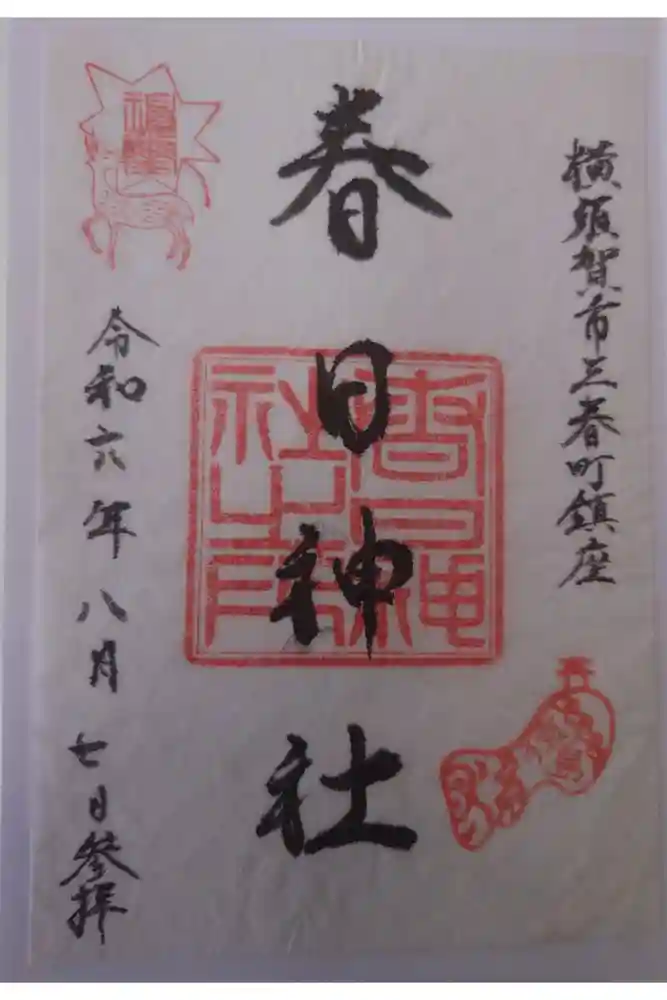 横須賀市三春町鎮座
春日神社
春日神社之印
令和六年八月七日参拝